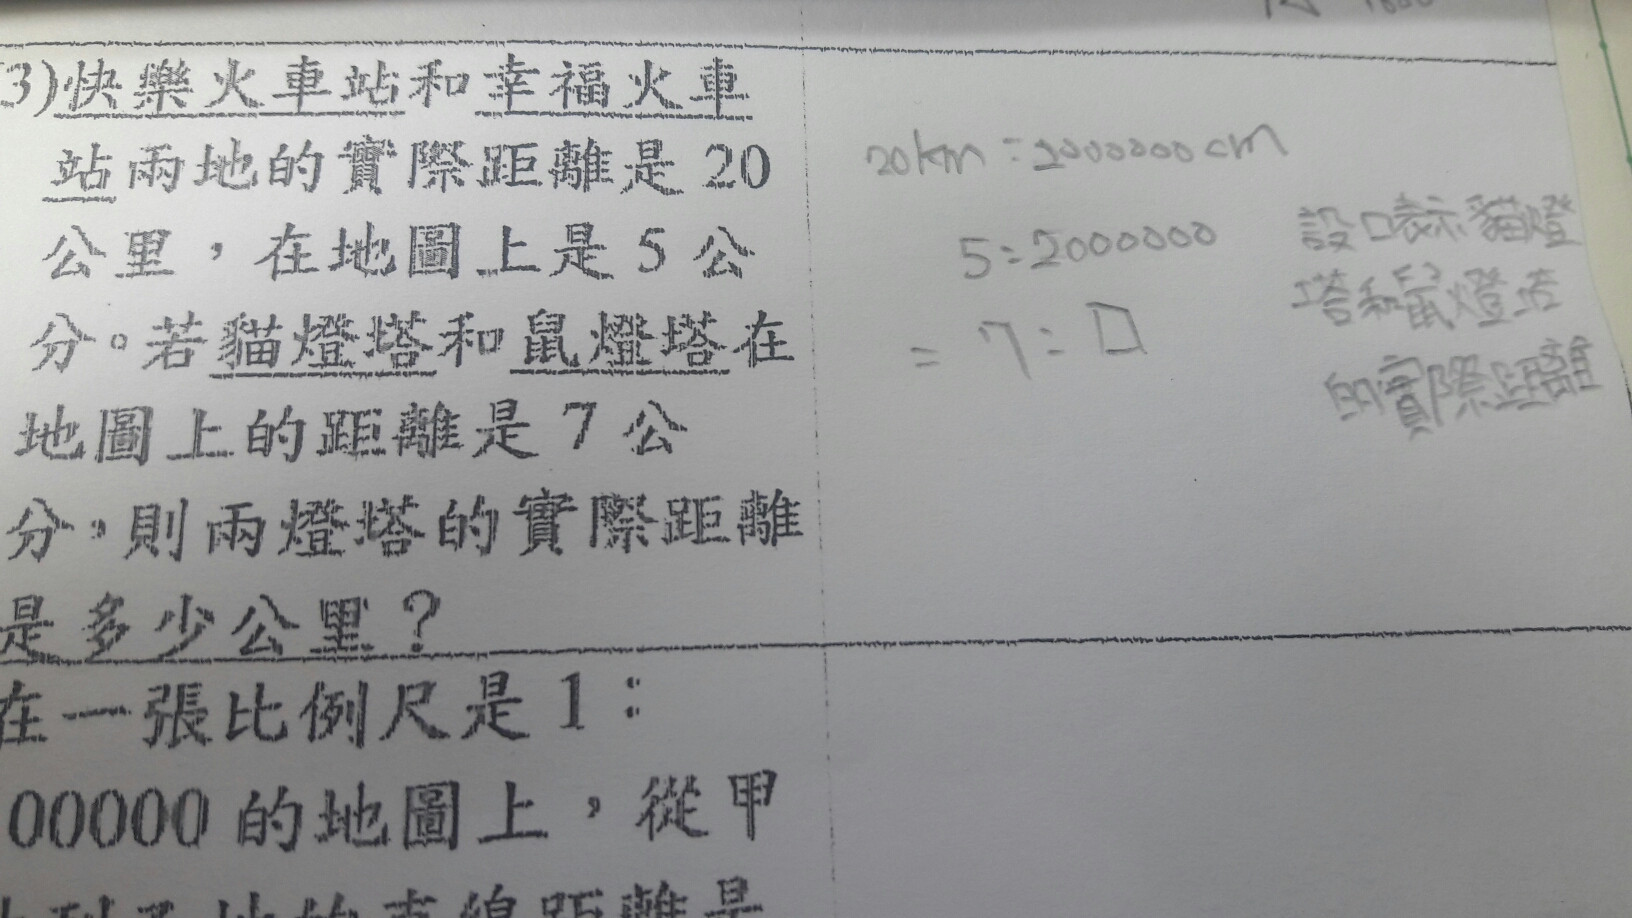 3)快樂火車站和幸福火車
站兩地的實際距離是20
公里，在地圖上是5公
分。若貓燈塔和鼠燈塔在
地圖上的距離是7公
分，則兩燈塔的實際距離
是多少公里？
20km=2000000cm
5:2000000
=7:□
設口表示貓燈
塔和鼠燈塔
的實際距離
在一張比例尺是1：
00000的地圖上，從甲
地的直線距離是